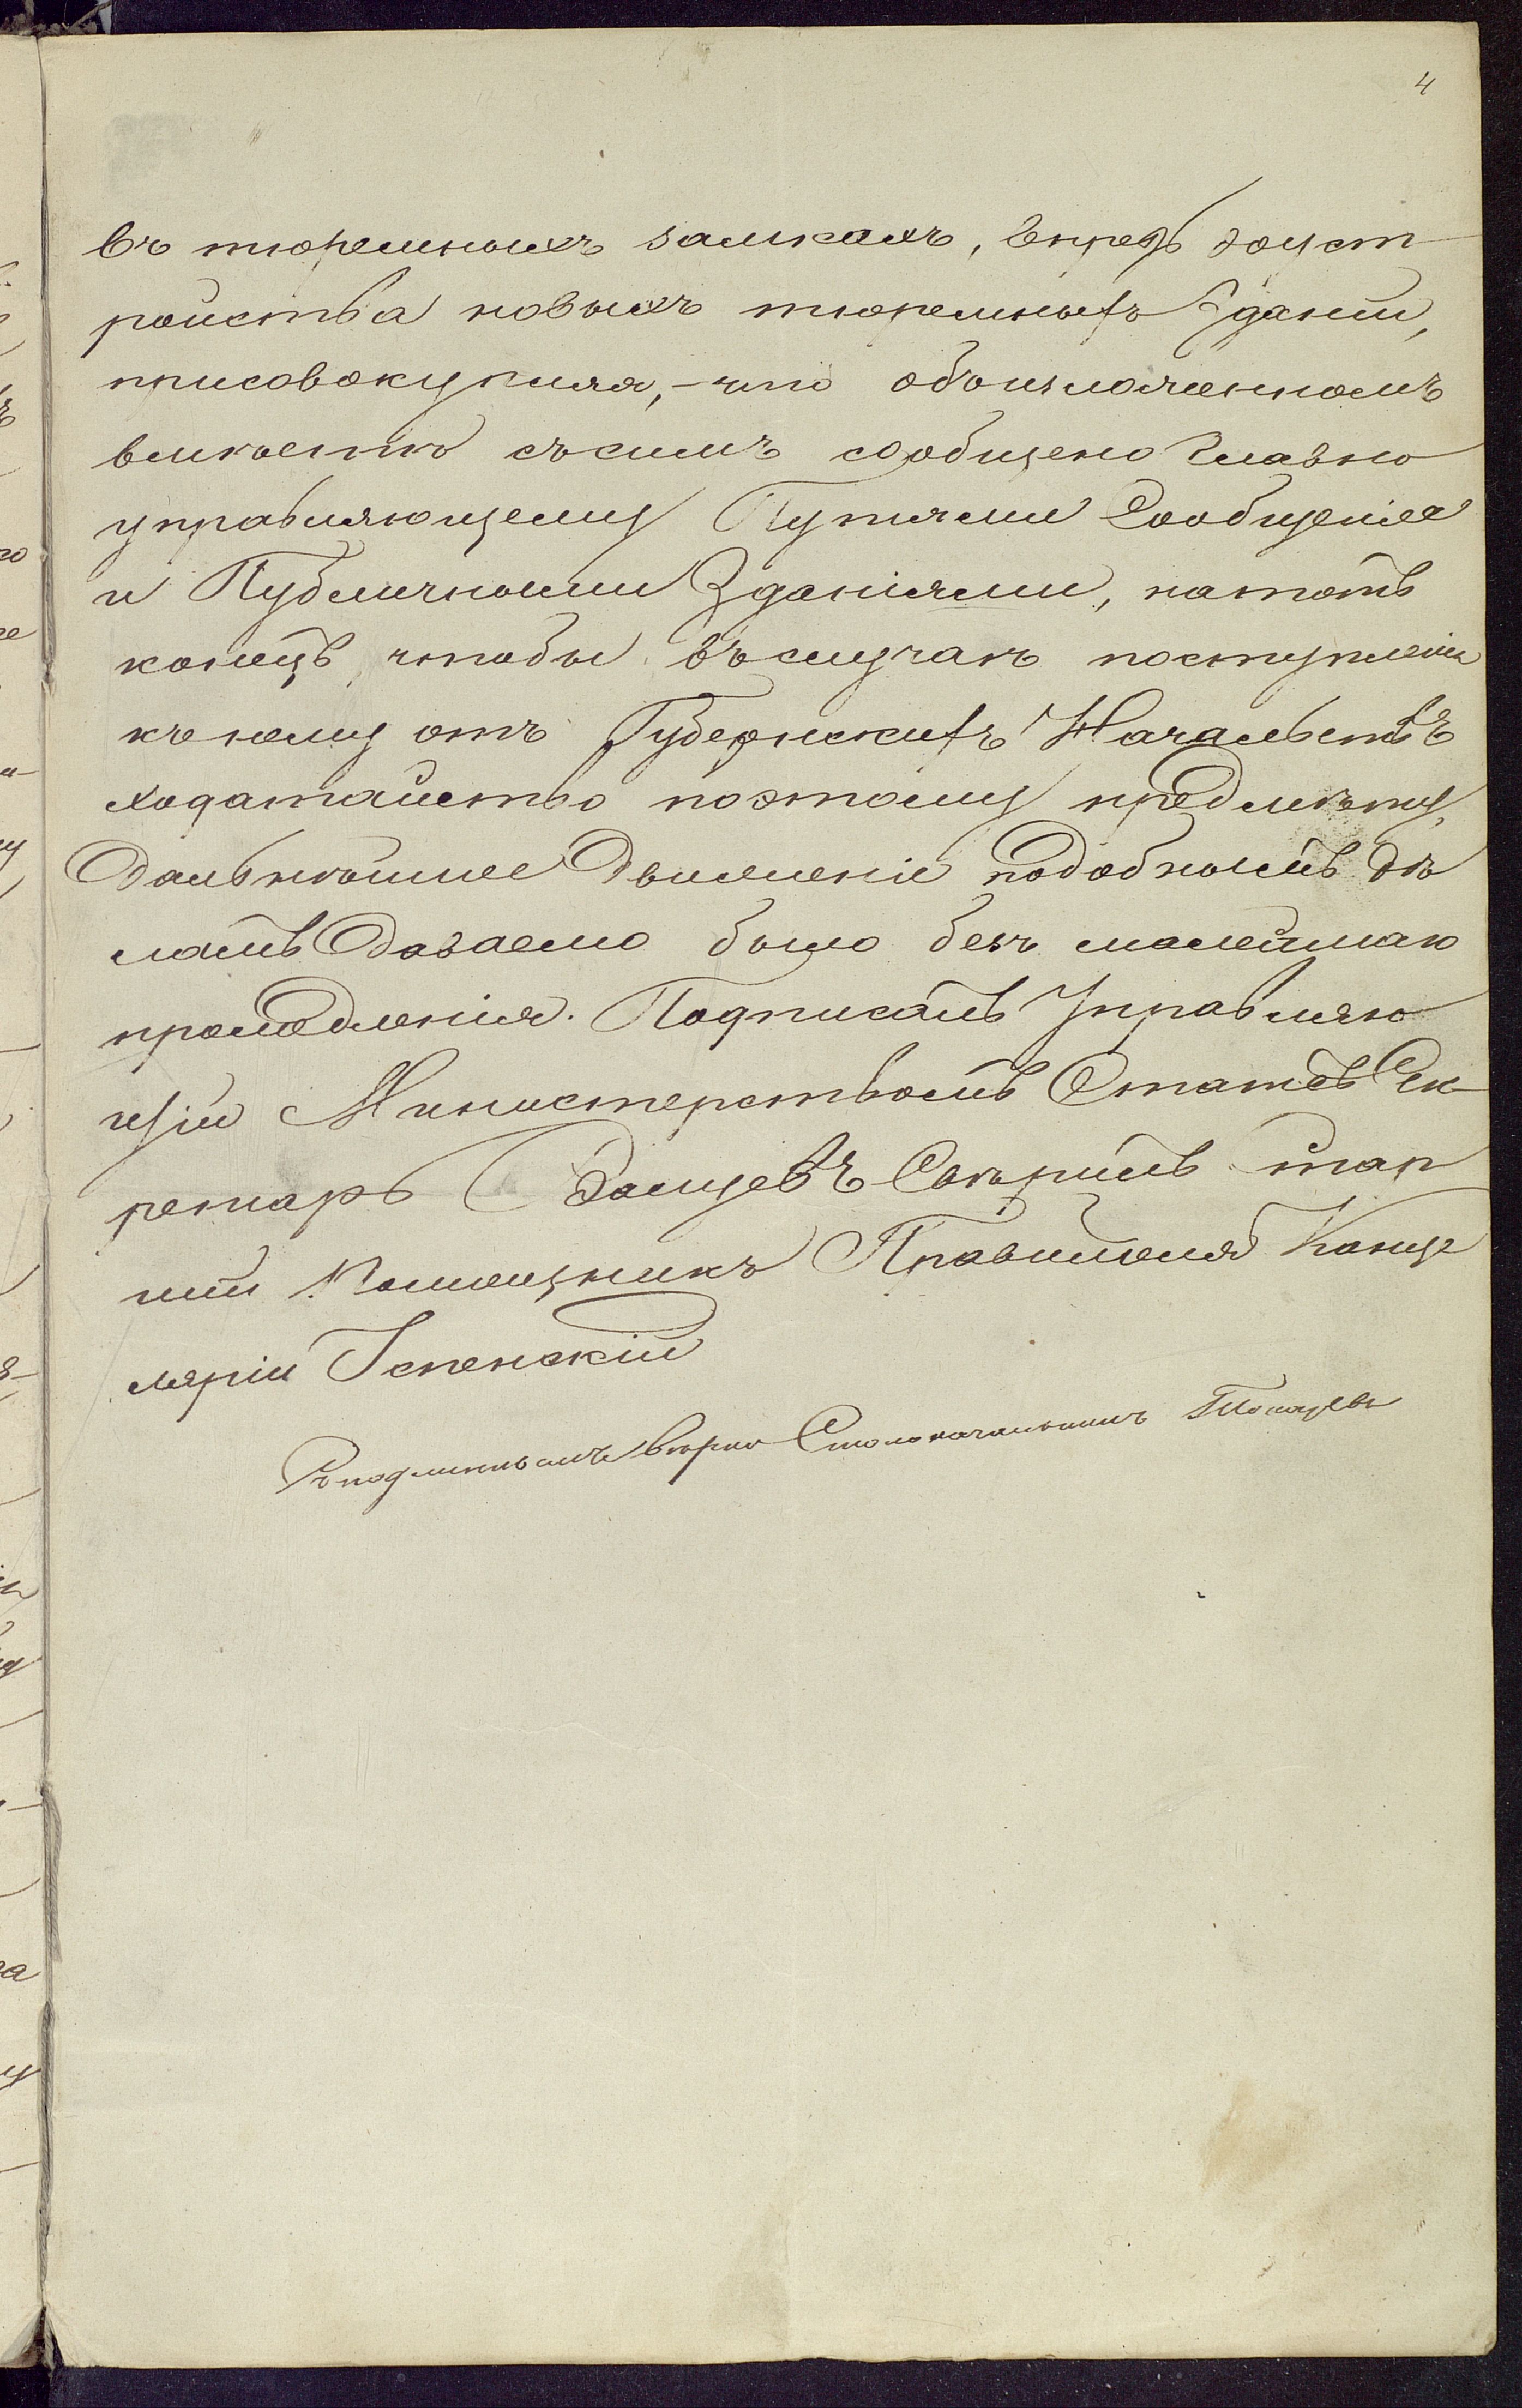 4
въ тюремныхъ замкахъ, впредь доуст
роиства новыхъ тюремныхъ Зданiй,
присовокупляя, - что объизложенномъ
вмѣстѣ съсимъ сообщено Главно
управляющему Путями Сообщенiя
и Публичными Зданiями, натотъ
конецъ, чтобы въслучаѣ поступленiя
къ нему отъ Губернскихъ Начальствъ
ходатайство поэтому предмѣту,
Дальнѣйшее Движенiе подобнымъ дѣ
ламъ Даваемо было безъ малейшаго
промедленiя. Подписалъ Управляю
щiй Министерствомъ Статсъ Сек
ретарь Скрѣпилъ Стар
шiй Помощникъ Правителя Канце
лярiи Успенскiй
Съподлиннымъ вѣрно Столоначальникъ